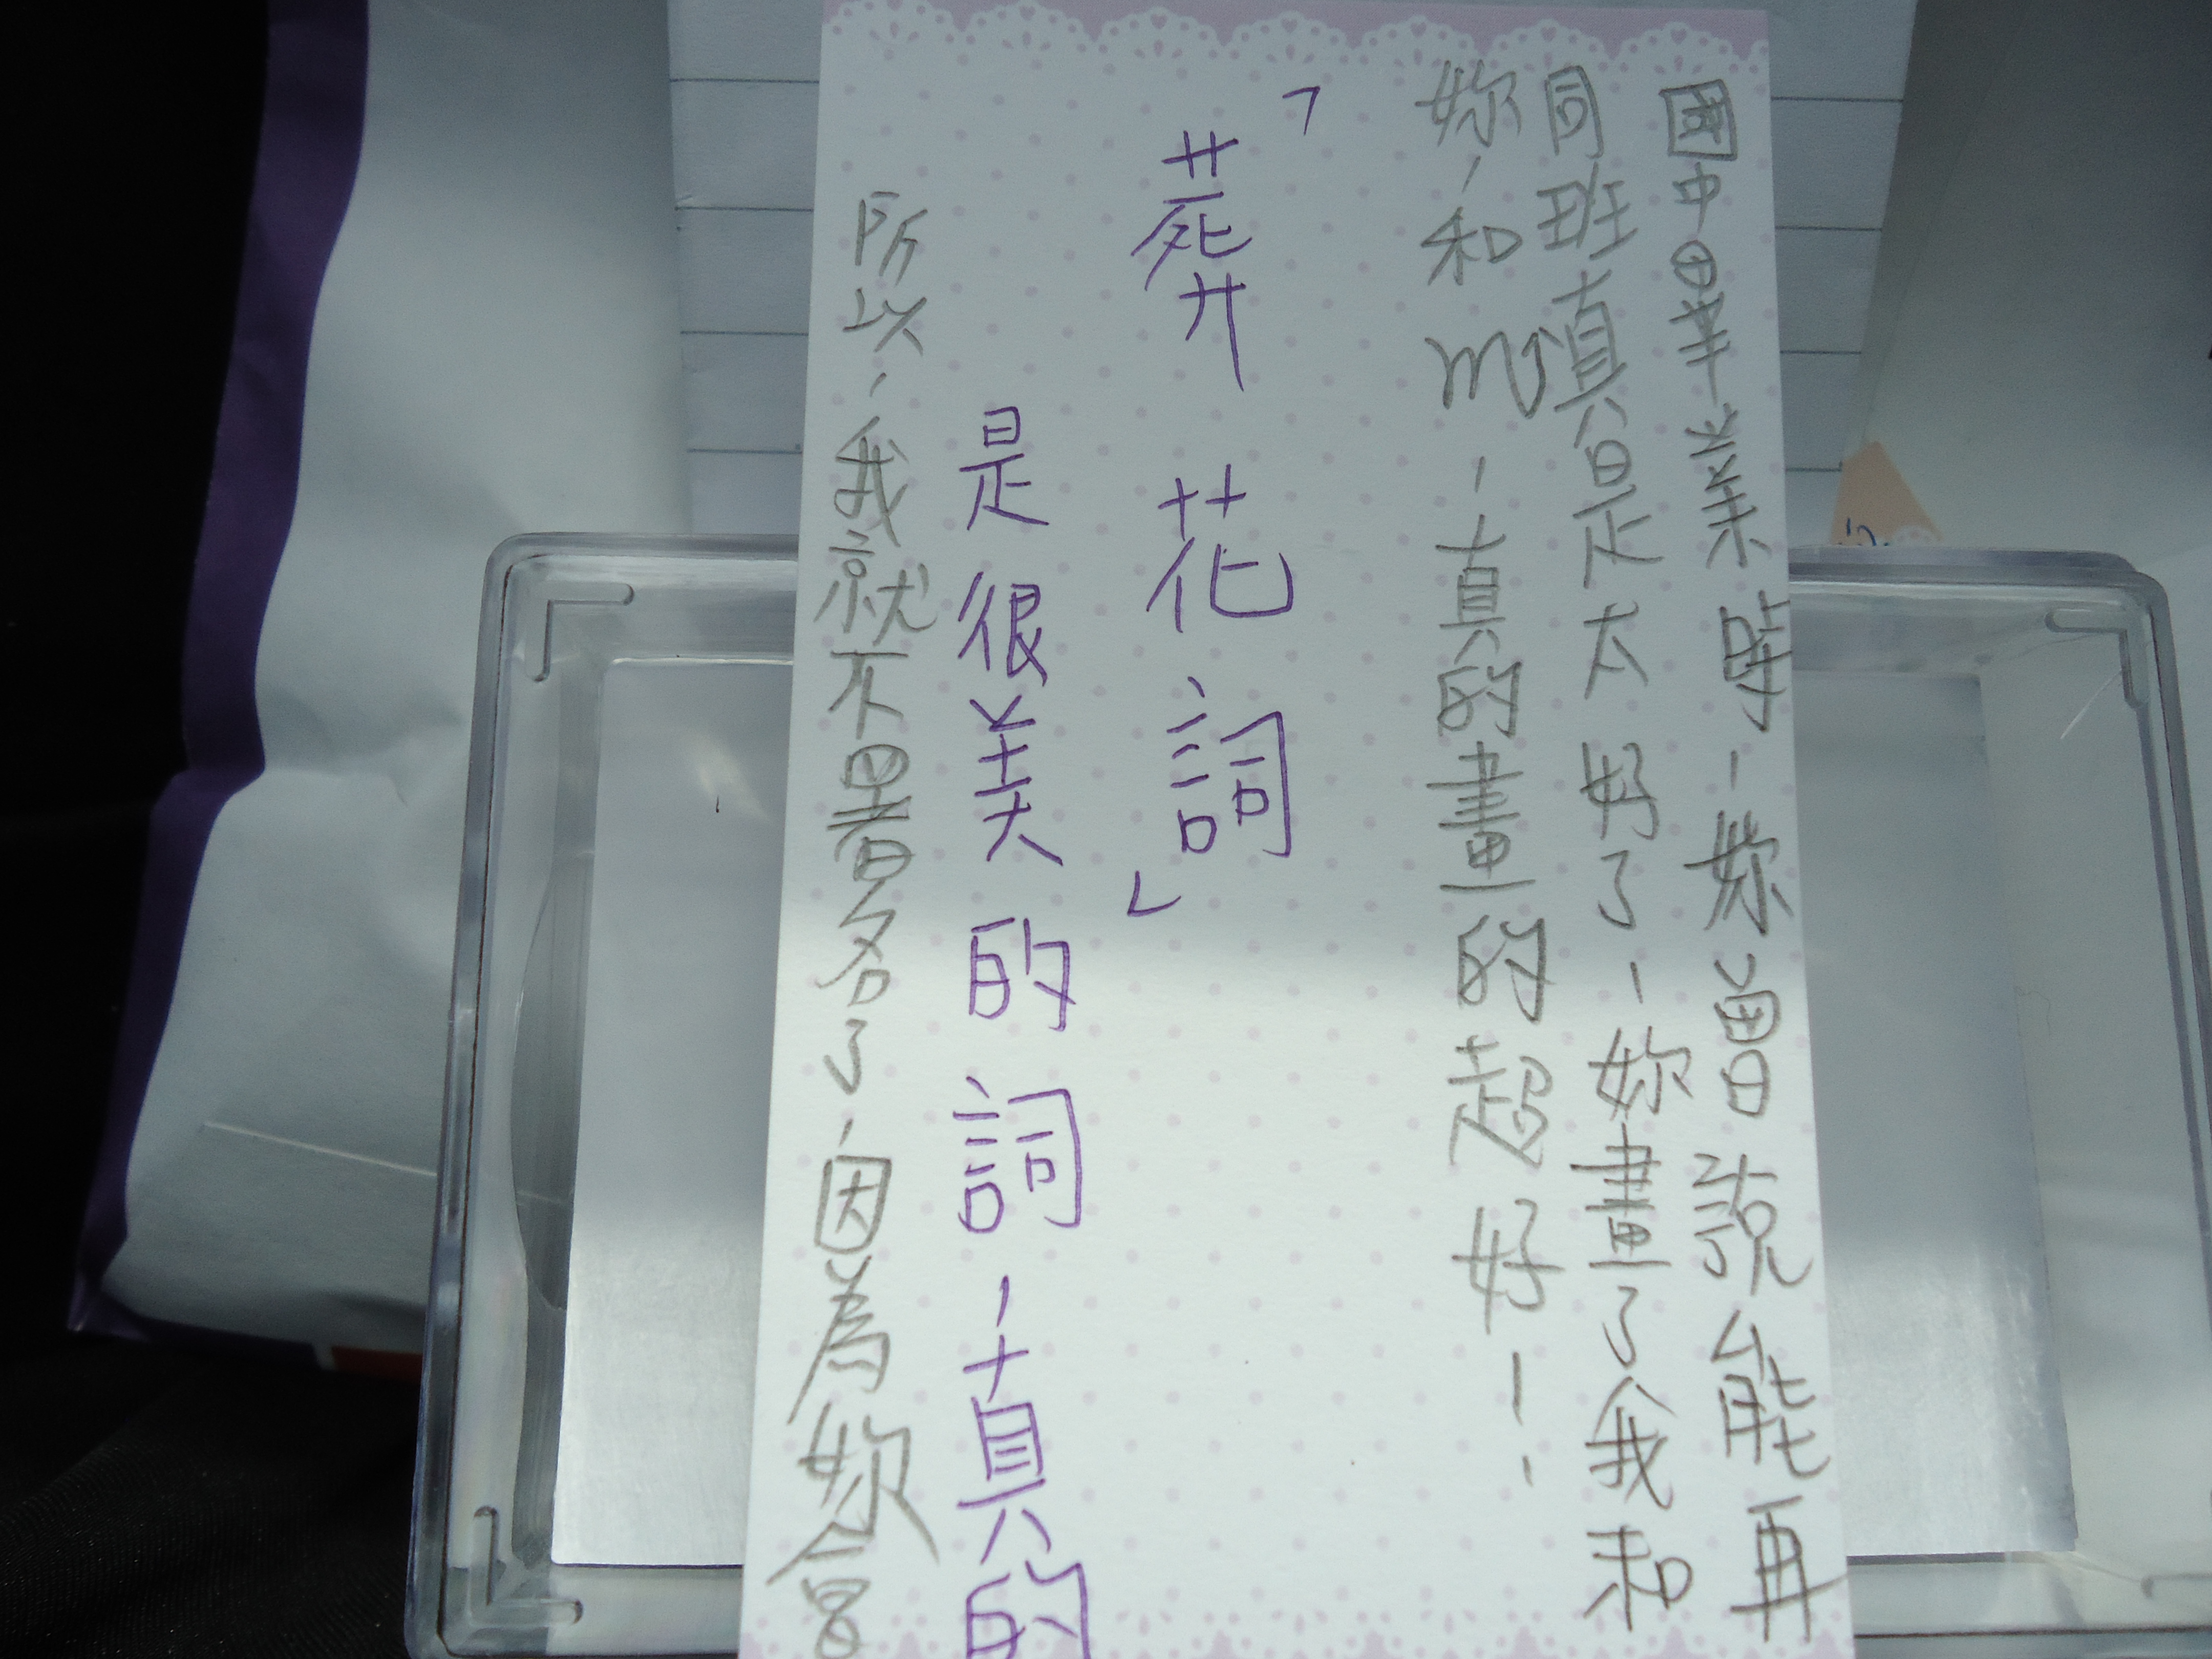 國中畢業時，妳曾說能再
同班真是太好了，妳畫了我和
妳，和m，真的畫的超好！！
「葬花詞」
是很美的詞，真的
所以，我就不署名了，因為妳會